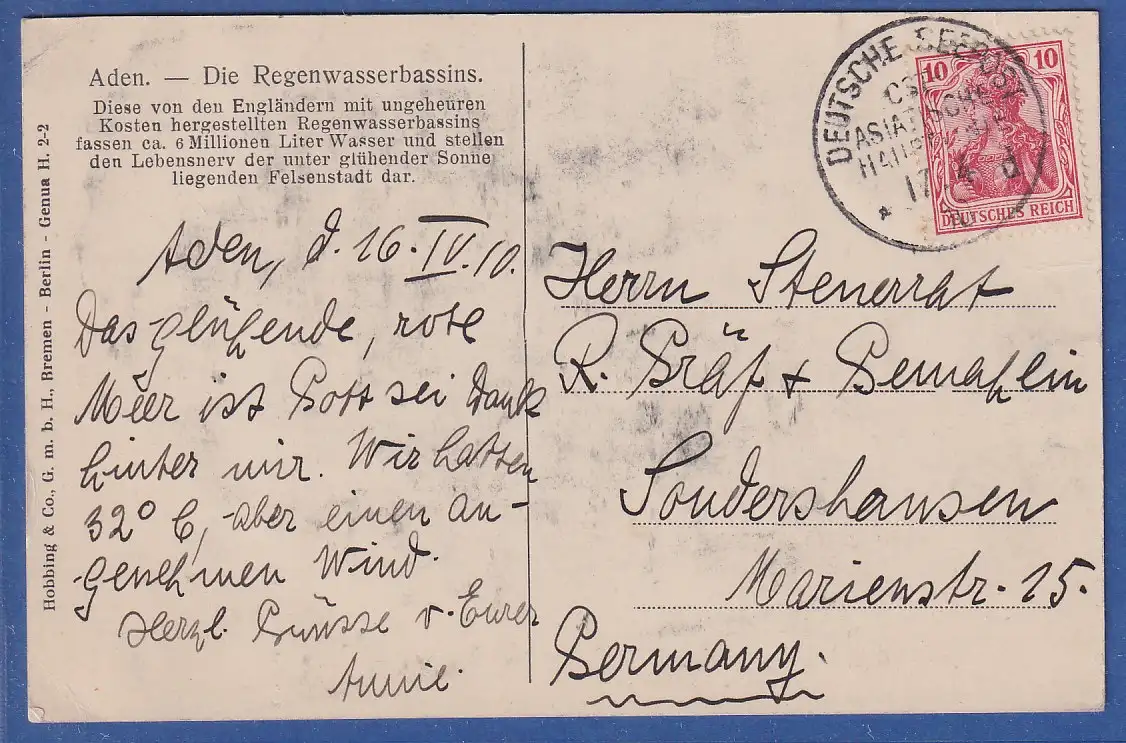 Aden. — Die Regenwasserbassins.
Diese von den Engländern mit ungeheuren
Kosten hergestellten Regenwasserbassins
fassen ca. 6 Millionen Liter Wasser und stellen
den Lebensnerv der unter glühender Sonne
liegenden Felsenstadt dar.
Hobbing & Co., G. m. b. H., Bremen - Berlin - Genua H. 2-2
Aden, d. 16. IV. 10.
Das glühende, rote
Meer ist Gott sei Dank
hinter mir. Wir hatten
32° C, aber einen an-
genehmen Wind.
Herzl. Grüsse v. Eurer
Annie.
DEUTSCHE SEEPOST
OST
ASIATISCHE
HAUPTLINIE
17 4 d
10 10
DEUTSCHES REICH
Herrn Steuerrat
R. Gräf + Gemahlin
Sondershausen
Marienstr. 15.
Germany.